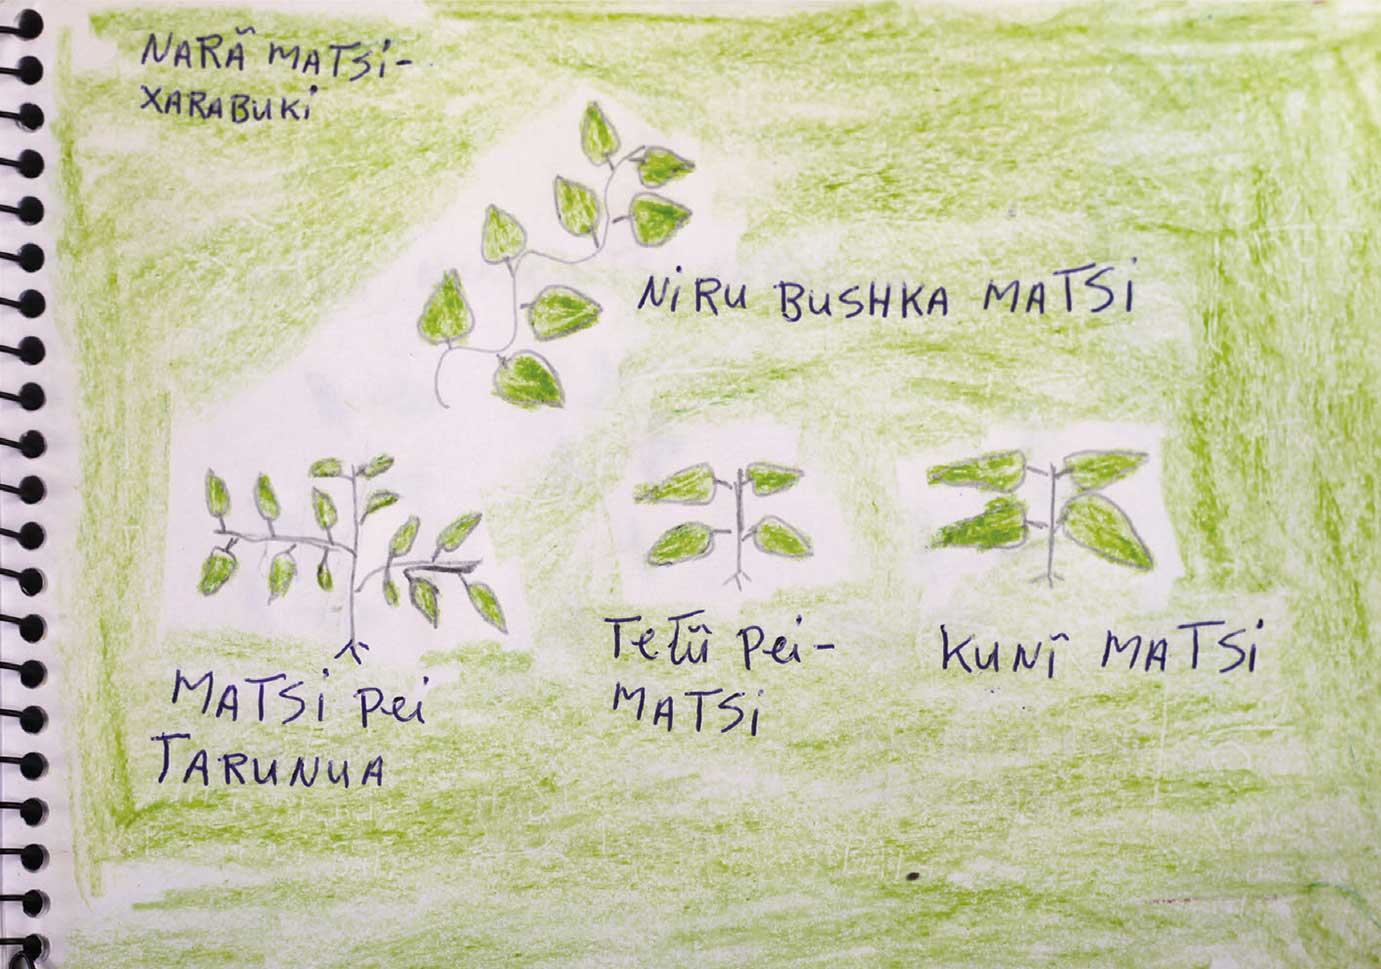 NARÃ MATSI-
XARABUKI
NIRU BUSHKA MATSI
MATSI Pei
TARUNUA
TeTŨI Pei-
MATSI
KUNĨ MATSI